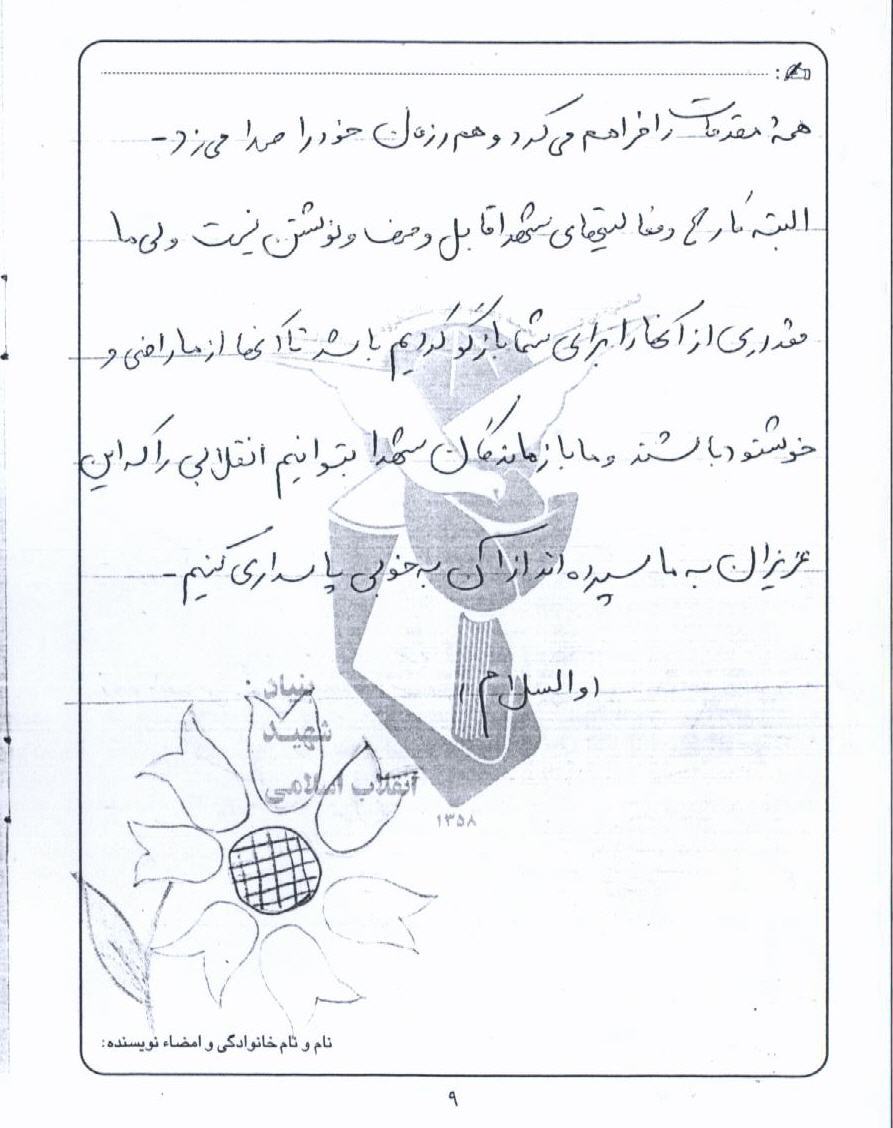 همهٔ مقدمات را فراهم می کرد و هم رزمان خود را صدا می زد -
البته کار و فعالیتهای شهدا قابل وصف و نوشتن نیست ولی ما
مقداری از آنها را برای شما بازگو کردیم باشد تا آنها از ما راضی و
خوشنود باشند و ما بازماندگان شهدا بتوانیم انقلابی را که این
عزیزان به ما سپرده اند از آن به خوبی پاسداری کنیم -
(والسلام)
بنیاد
شهید
انقلاب اسلامی
۱۳۵۸
نام و نام خانوادگی و امضاء نویسنده:
۹